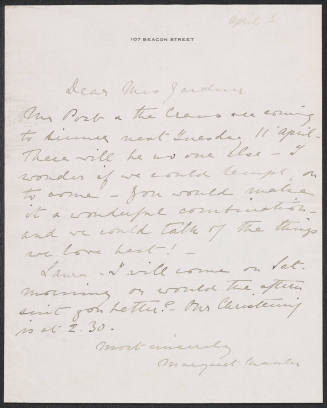 April 5
107 BEACON STREET
Dear Mrs Gardner
Mr Post & the Crams are coming
to dinner next Tuesday 11 April -
There will be no one else - I
wonder if we could tempt you
to come - You would make
it a wonderful combination -
and we could talk of the things
we love best! -
Laura & I will come on Sat.
morning or would the aftern
suit you better? - Our Christening
is at 2.30.
Most sincerely
Margaret